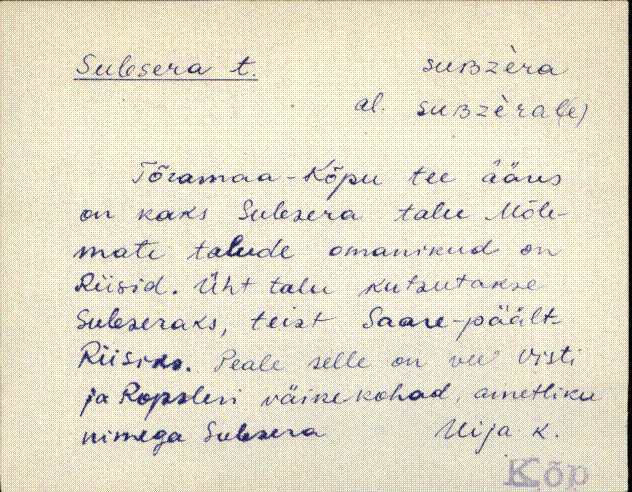 Subsera t.    suʙzèra
al. suʙzèra(e)
Tõramaa-Kõpu tee ääres
on kaks Subsera talu Mõle-
mate talude omanikud on
Riisid. Üht talu kutsutakse
Subseraks, teist Saare-päält-
Riisiks. Peale selle on veel Visti
ja Ropsleri väikekohad, ametliku
nimega Subsera    Uija k.
Kõp